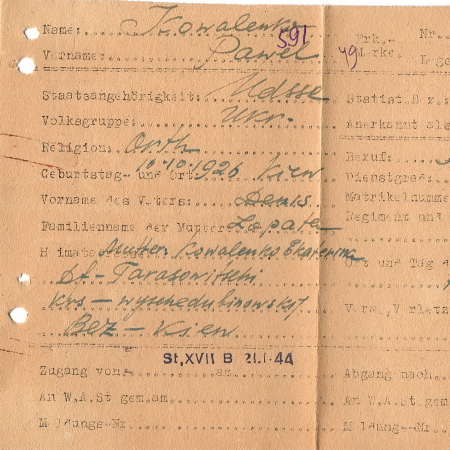 Name: Kowalenko
591 Frk.- Nr.
Vorname: Pawel 49
Staatsangehörigkeit: Udsse Statist Bez.:
Volksgruppe: Ukr. Anerkannt als
Religion: Orth Beruf:
Geburtstag- und Ort: 10.10.1926 Kiew Dienstgrad:
Vorname des Vaters: Denis Matrikelnummer
Familienname der Mutter: Lopata Regiment und
Mutter: Kowalenko Ekaterina Ort und Tag d
Df - Tarasowitschi
Krs - wyschedubinowskij Verw., Verletz
Bez - Kiew
St, XVII B 21.1.44
Zugang von: am Abgang nach
An W.A.St gem.am An W.A.St gem
Meldungs-Nr Meldungs-Nr